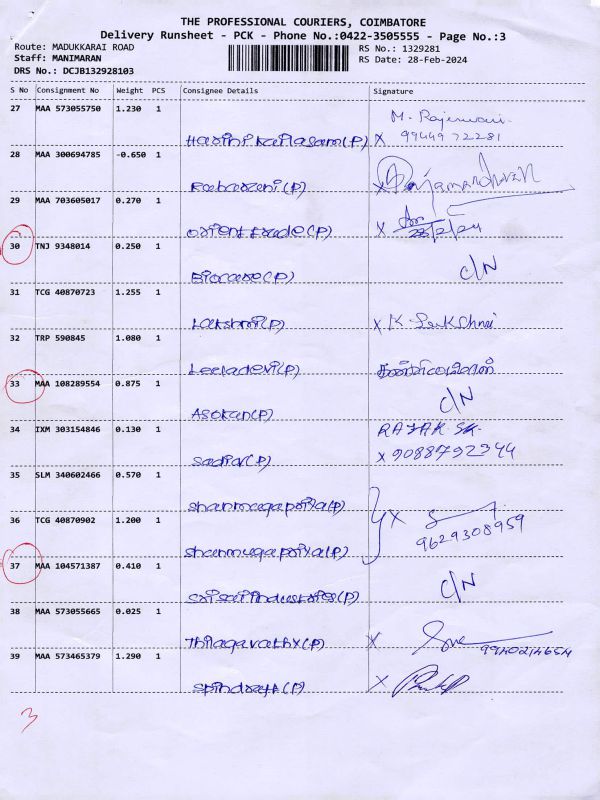 THE PROFESSIONAL COURIERS, COIMBATORE
Delivery Runsheet - PCK - Phone No.:0422-3505555 - Page No.:3
Route: MADUKKARAI ROAD RS No.: 1329281
Staff: MANIMARAN RS Date: 28-Feb-2024
DRS No.: DCJB132928103
S No Consignment No Weight PCS Consignee Details Signature
27 MAA 573055750 1.230 1 M. Rajeswari
(P) X 9944972281
28 MAA 300694785 -0.650 1
(P) X
29 MAA 703605017 0.270 1
orient trade(P) X 28/2/24
30 TNJ 9348014 0.250 1
Biocare(P) C/N
31 TCG 40870723 1.255 1
Lakshmi(P) X K.
32 TRP 590845 1.080 1
Leeladevi(P)
33 MAA 108289554 0.875 1
Asokan(P) C/N
34 IXM 303154846 0.130 1 RAJAK SK.
(P) X 9088792344
35 SLM 340602466 0.570 1
shanmugapriya(P)
36 TCG 40870902 1.200 1 X
shanmugapriya(P) 9629308959
37 MAA 104571387 0.410 1
srisaiindustries(P) C/N
38 MAA 573055665 0.025 1
(P) X
39 MAA 573465379 1.290 1
(P) X
3